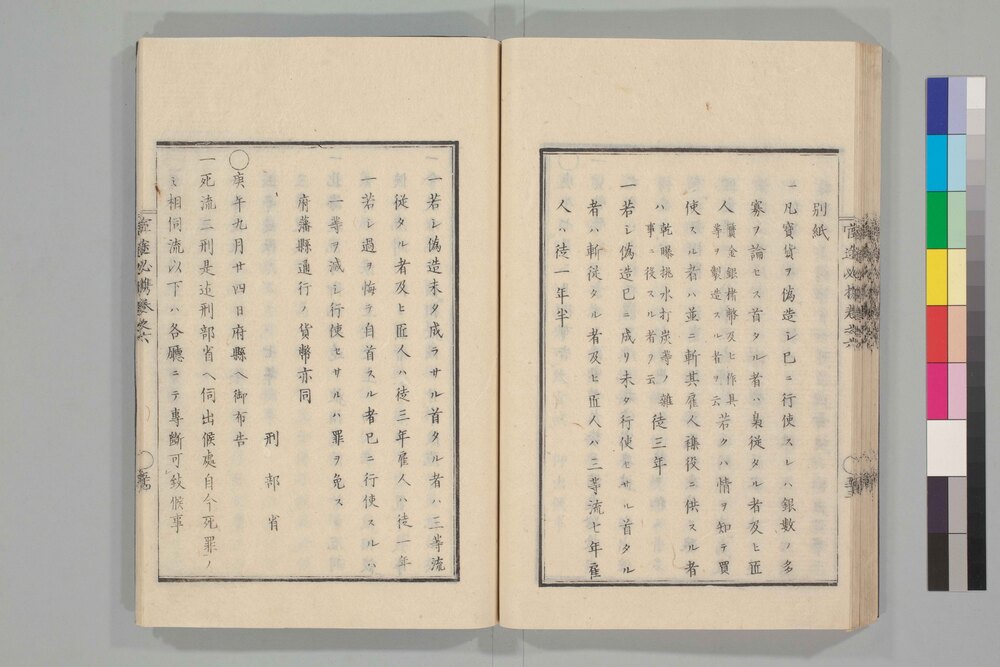 別紙
一凡寳貨ヲ偽造シ已ニ行使スレハ銀數ノ多
寡ヲ論セス首タル者ハ梟從タル者及ヒ匠
人贋金銀楮幣及ヒ作具等ヲ製造スル者ヲ云若クハ情ヲ知テ買
使スル者ハ並ニ斬其雇人襍役ニ供スル者
ハ乾曝挑水打炭等ノ雜事ニ役スル者ヲ云徒三年
一若シ偽造已ニ成リ未タ行使セサル首タル
者ハ斬從タル者及ヒ匠人ハ三等流七年雇
人ハ徒一年半
一若シ偽造未タ成ラサル首タル者ハ三等流
從タル者及ヒ匠人ハ徒三年雇人ハ徒一年
一若シ過ヲ悔テ自首スル者已ニ行使スルハ
一等ヲ減シ行使セサルハ罪ヲ免ス
府藩縣通行ノ貨幣亦同
刑部省
〇庚午九月廿四日府縣ヘ御布告
一死流二刑是迄刑部省ヘ伺出候處自今死罪ノ
ミ相伺流以下ハ各廳ニテ專斷可致候事